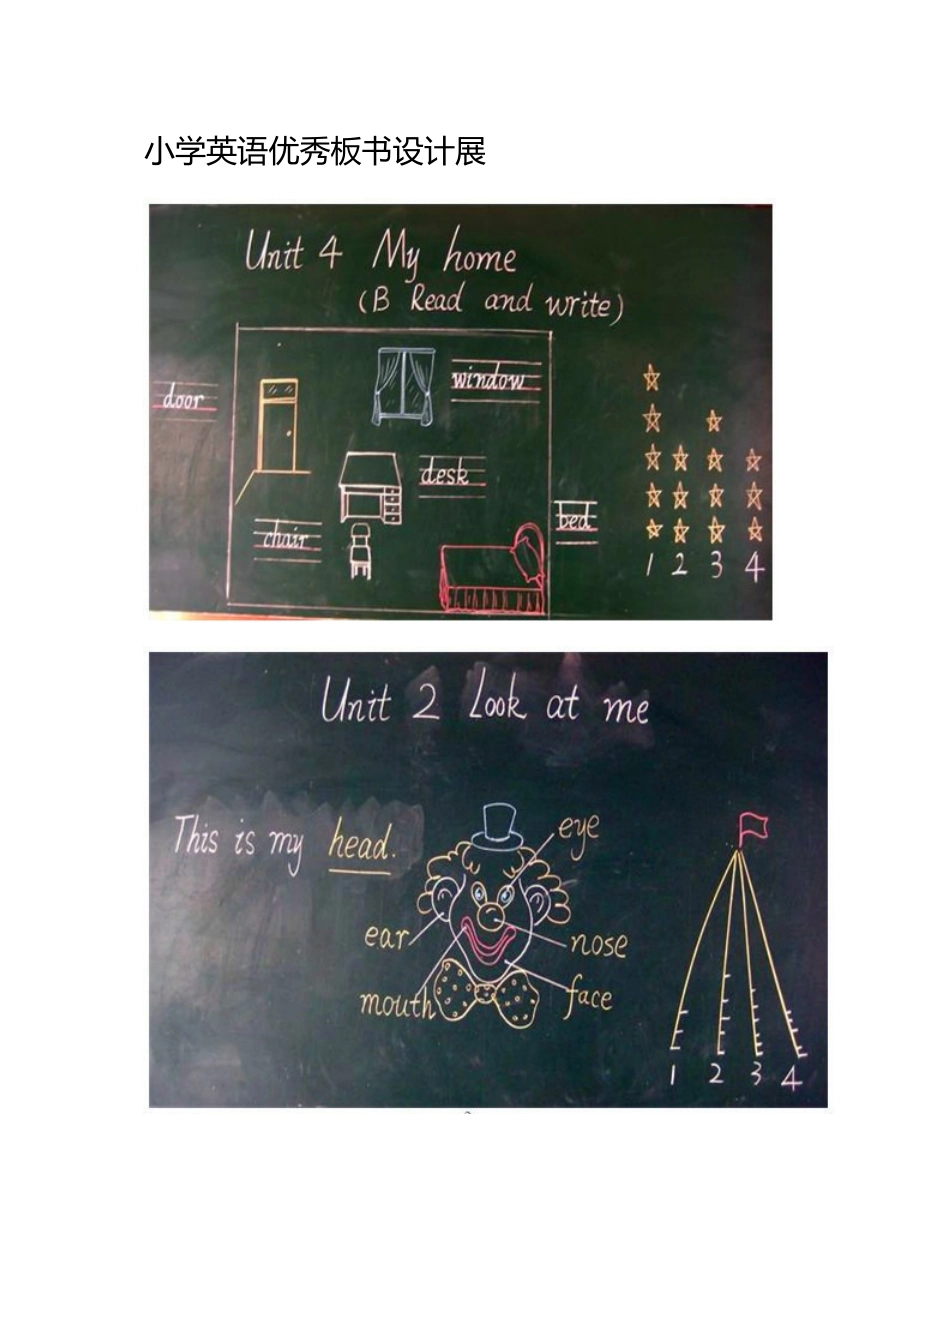 小学英语优秀板书设计展
Unit 4 My home
(B Read and write)
window
door
desk
bed
chair
1 2 3 4
Unit 2 Look at me
This is my head.
eye
ear
nose
mouth
face
1 2 3 4